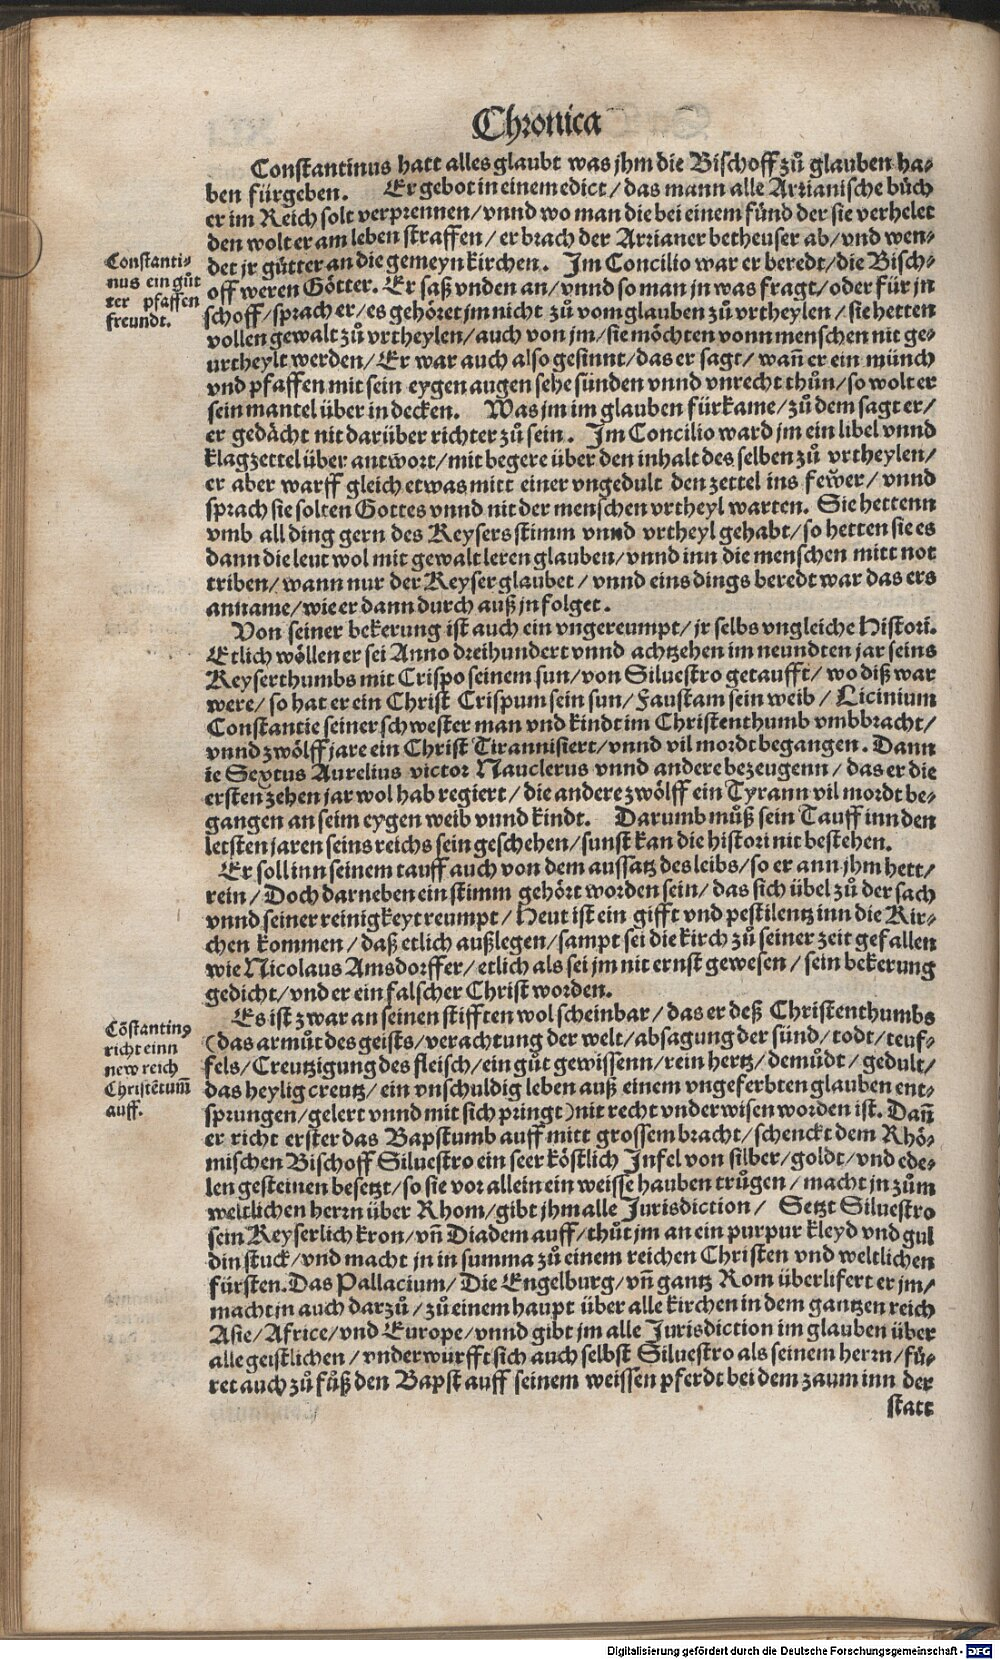 Chronica
Constantinus hatt alles glaubt was jhm die Bischoff zů glauben ha⸗
ben fürgeben. Er gebot in einem edict / das mann alle Arrianische bůch
er im Reich solt verprennen / vnnd wo man die bei einem fünd der sie verhelet
den wolt er am leben straffen / er brach der Arrianer betheuser ab / vnd wen⸗
det jr gütter an die gemeyn kirchen. Im Concilio war er beredt / die Bisch⸗
off weren Götter. Er saß vnden an / vnnd so man jn was fragt / oder für jn
schoff / sprach er / es gehöret jm nicht zů vom glauben zů vrtheylen / sie hetten
vollen gewalt zů vrtheylen / auch von jm / sie möchten vonn menschen nit ge⸗
urtheylt werden / Er war auch also gesinnt / das er sagt / wañ er ein münch
vnd pfaffen mit sein eygen augen sehe sünden vnnd vnrecht thůn / so wolt er
sein mantel über in decken. Was jm im glauben fürkame / zů dem sagt er /
er gedächt nit darüber richter zů sein. Im Concilio ward jm ein libel vnnd
klagzettel über antwort / mit begere über den inhalt des selben zů vrtheylen /
er aber warff gleich etwas mitt einer vngedult den zettel ins fewer / vnnd
sprach sie solten Gottes vnnd nit der menschen vrtheyl warten. Sie hettenn
vmb all ding gern des Keysers stimm vnnd vrtheyl gehabt / so hetten sie es
dann die leut wol mit gewalt leren glauben / vnnd inn die menschen mitt not
triben / wann nur der Keyser glaubet / vnnd eins dings beredt war das ers
anname / wie er dann durch auß jn folget.
Constanti⸗
nus ein gůt
ter pfaffen
freundt.
Von seiner bekerung ist auch ein vngereumpt / jr selbs vngleiche Histori.
Etlich wöllen er sei Anno dreihundert vnnd achtzehen im neundten jar seins
Keyserthumbs mit Crispo seinem sun / von Siluestro getaufft / wo diß war
were / so hat er ein Christ Crispum sein sun / Faustam sein weib / Licinium
Constantie seiner schwester man vnd kindt im Christenthumb vmbbracht /
vnnd zwölff jare ein Christ Tirannisiert / vnnd vil mordt begangen. Dann
ie Sextus Aurelius victor Nauclerus vnnd andere bezeugenn / das er die
ersten zehen jar wol hab regiert / die andere zwölff ein Tyrann vil mordt be⸗
gangen an seim eygen weib vnnd kindt. Darumb můß sein Tauff inn den
letsten jaren seins reichs sein geschehen / sunst kan die histori nit bestehen.
Er soll inn seinem tauff auch von dem aussatz des leibs / so er ann jhm hett /
rein / Doch darneben ein stimm gehört worden sein / das sich übel zů der sach
vnnd seiner reinigkeyt reumpt / Heut ist ein gifft vnd pestilentz inn die Kir⸗
chen kommen / daß etlich außlegen / sampt sei die kirch zů seiner zeit gefallen
wie Nicolaus Amsdorffer / etlich als sei jm nit ernst gewesen / sein bekerung
gedicht / vnd er ein falscher Christ worden.
Es ist zwar an seinen stifften wol scheinbar / das er deß Christenthumbs
(das armůt des geists / verachtung der welt / absagung der sünd / todt / teuf⸗
fels / Creutzigung des fleisch / ein gůt gewissenn / rein hertz / demůdt / gedult /
das heylig creutz / ein vnschuldig leben auß einem vngeferbten glauben ent⸗
sprungen / gelert vnnd mit sich pringt) nit recht vnderwisen worden ist. Dañ
er richt erster das Bapstumb auff mitt grossem bracht / schenckt dem Rhö⸗
mischen Bischoff Siluestro ein seer köstlich Infel von silber / goldt / vnd ede⸗
len gesteinen besetzt / so sie vor allein ein weisse hauben trůgen / macht jn zům
weltlichen herrn über Rhom / gibt jhm alle Jurisdiction / Setzt Siluestro
sein Keyserlich kron / vñ Diadem auff / thůt jm an ein purpur kleyd vnd gul
din stuck / vnd macht jn in summa zů einem reichen Christen vnd weltlichen
fürsten. Das Pallacium / Die Engelburg / vñ gantz Rom überlifert er jm /
macht jn auch darzů / zů einem haupt über alle kirchen in dem gantzen reich
Asie / Africe / vnd Europe / vnnd gibt jm alle Jurisdiction im glauben über
alle geistlichen / vnderwürfft sich auch selbst Siluestro als seinem herrn / fü⸗
ret auch zů fůß den Bapst auff seinem weissen pferdt bei dem zaum inn der
statt
Cõstantinꝰ
richt einn
new reich
Christẽtum̃
auff.
Digitalisierung gefördert durch die Deutsche Forschungsgemeinschaft - DFG